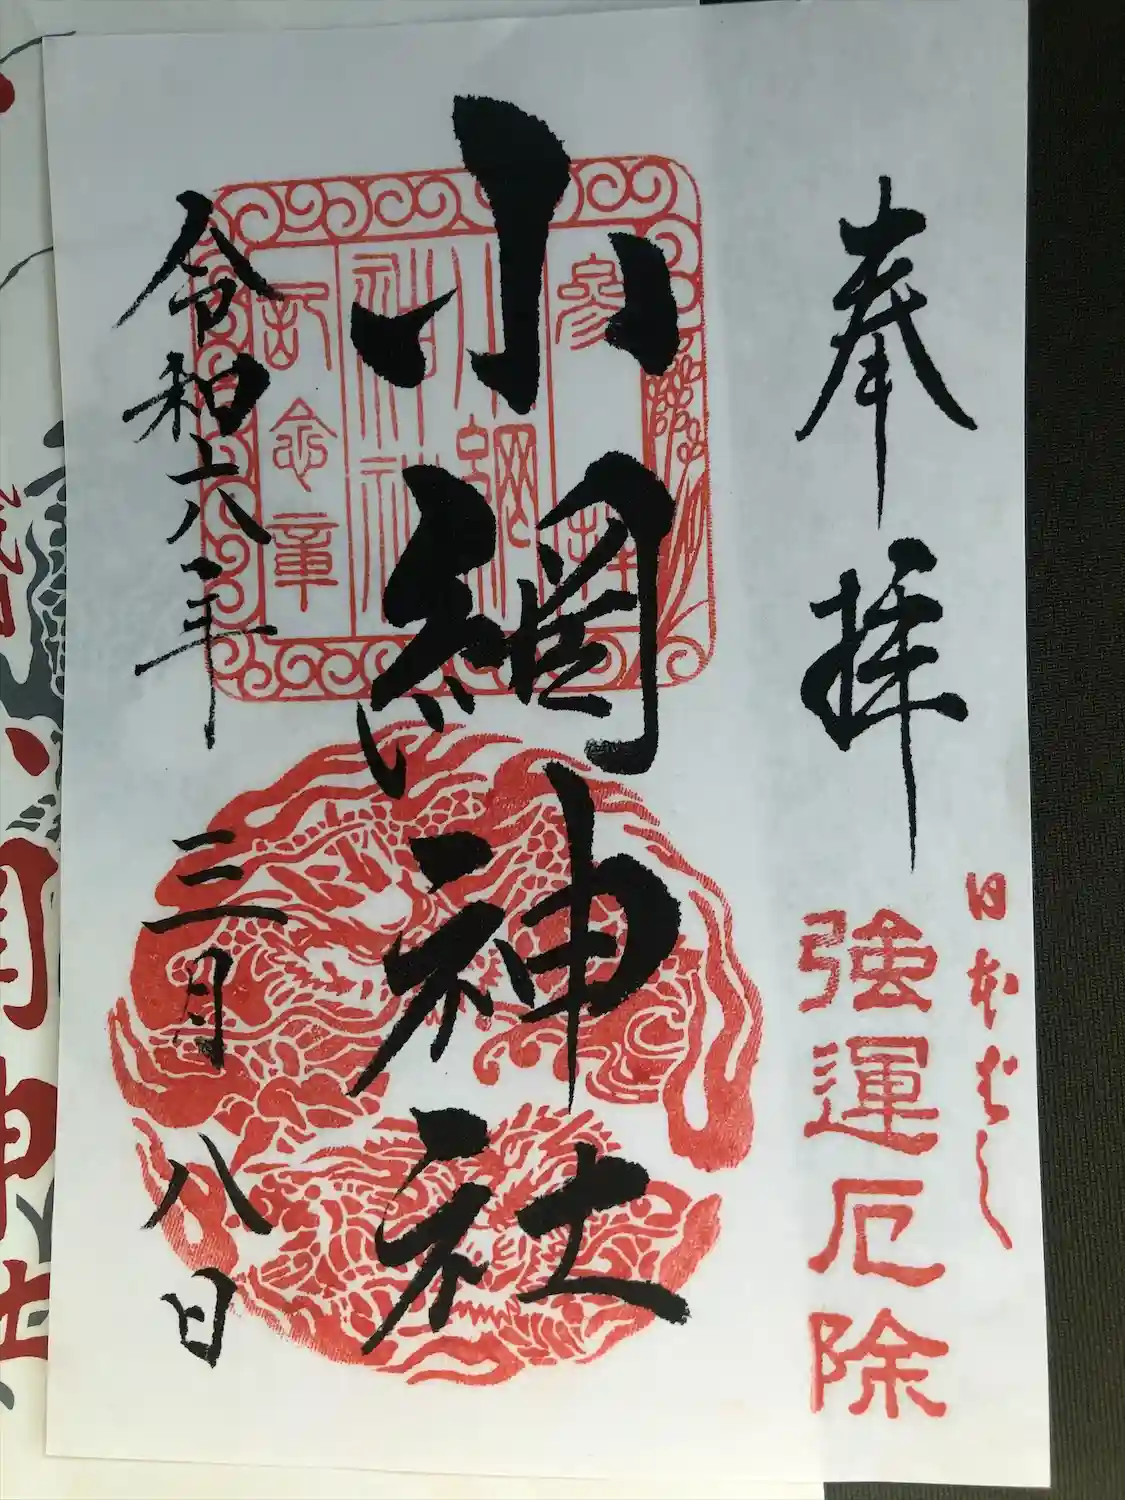 日本ばし
奉拝
強運厄除
小網神社
参拝
小網
神社
記念章
令和六年三月八日